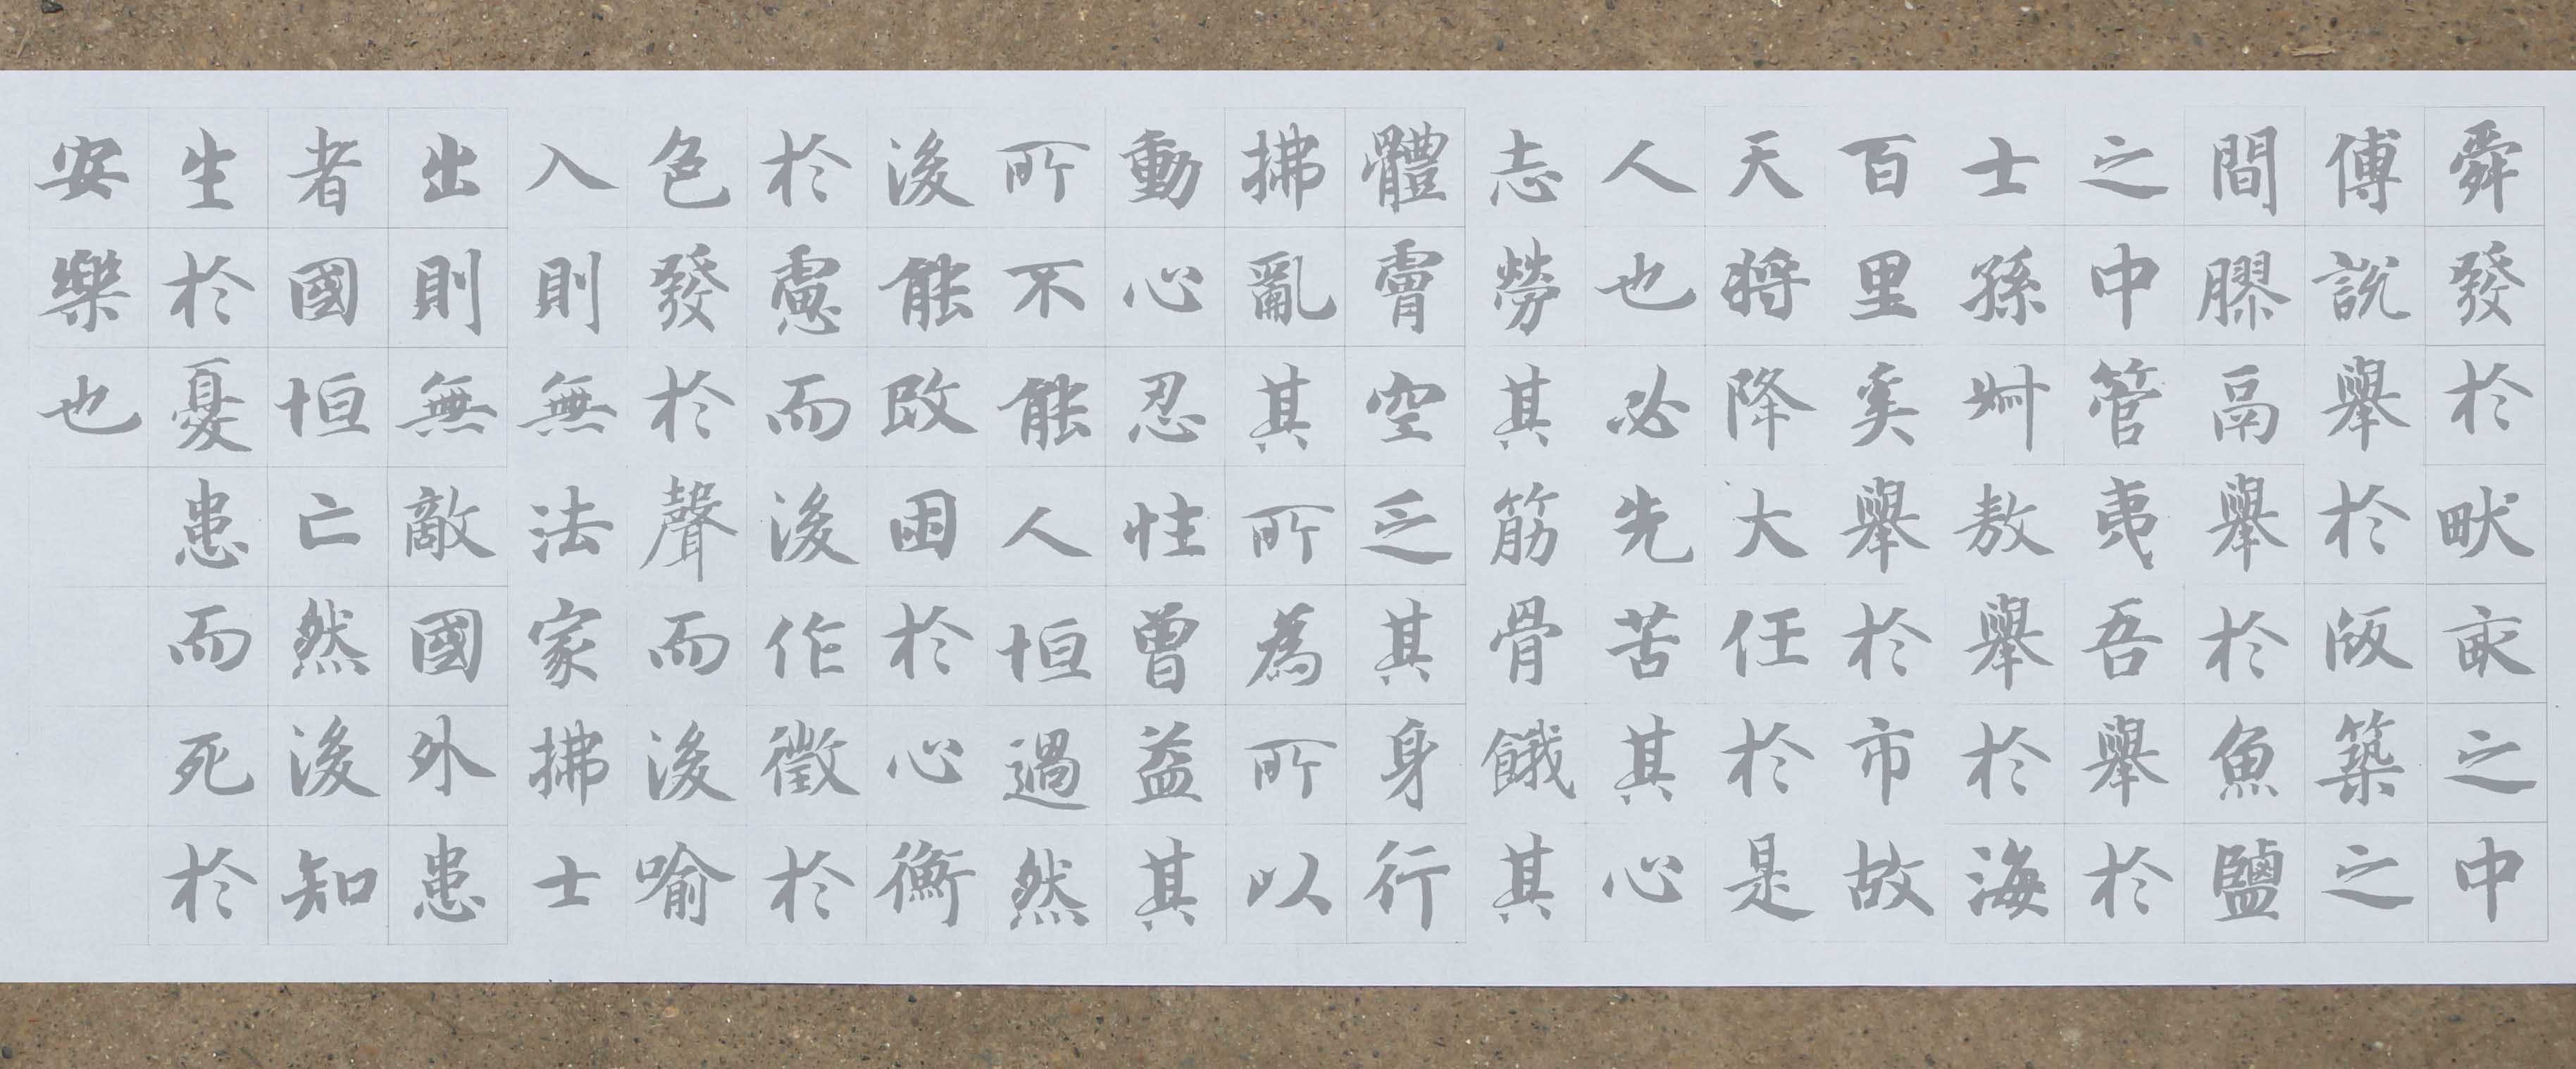 舜發於畎畝之中
傅說舉於版築之
間膠鬲舉於魚鹽
之中管夷吾舉於
士孫叔敖舉於海
百里奚舉於市故
天將降大任於是
人也必先苦其心
志勞其筋骨餓其
體膚空乏其身行
拂亂其所為所以
動心忍性曾益其
所不能人恒過然
後能改困於心衡
於慮而後作徵於
色發於聲而後喻
入則無法家拂士
出則無敵國外患
者國恒亡然後知
生於憂患而死於
安樂也